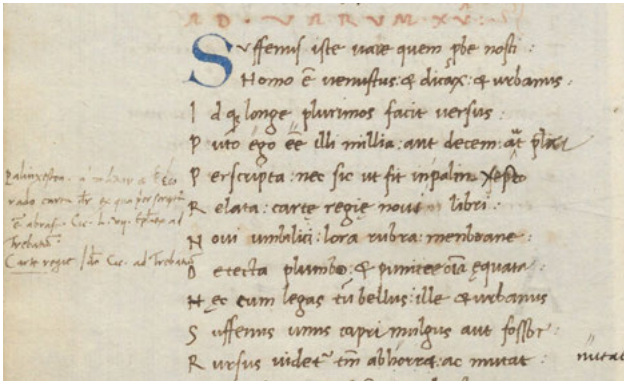 AD · VARUM XV :
Suffenus iste vare quem pbe nosti :
Homo ē venustus : & dicax : & urbanus
I dq longe plurimos facit versus :
P uto ego eē illi millia : aut decem : aut plura
P erscripta : nec sic ut fit in palimxesto
R elata : carte regie novi libri :
N ovi umbilici : lora rubra : menbrane
D etecta plumbo : & pumice oīa ęquata :
H ęc cum legas tū bellus : ille & urbanus
S uffenus unus caprimulgus aut fossor :
R ursus videt tm abhorret ac mutat :
nutat
Palinxeston
ē abrasa Cic. ad
Trebatiū
Carte regie Cic. ad Trebatiū